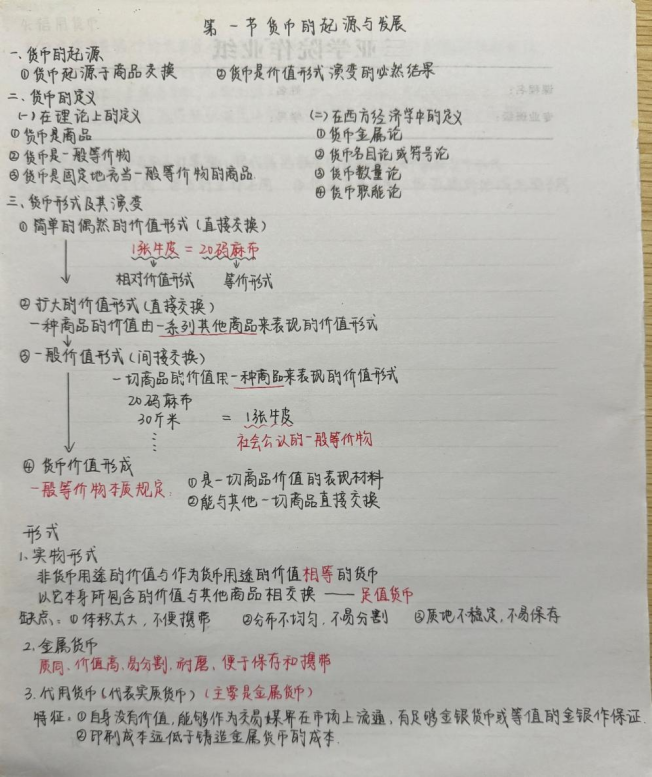 第一节货币的起源与发展
一、货币的起源
①货币起源于商品交换 ②货币是价值形式演变的必然结果
二、货币的定义
(一)在理论上的定义 (二)在西方经济学中的定义
①货币是商品 ①货币金属论
②货币是一般等价物 ②货币名目论或符号论
③货币是固定地充当一般等价物的商品 ③货币数量论
④货币职能论
三、货币形式及其演变
①简单的偶然的价值形式(直接交换)
1张牛皮 = 20码麻布
相对价值形式 等价形式
②扩大的价值形式(直接交换)
一种商品的价值由一系列其他商品来表现的价值形式
③一般价值形式(间接交换)
一切商品的价值用一种商品来表现的价值形式
20码麻布
30斤米 = 1张牛皮
⋮ 社会公认的一般等价物
④货币价值形成
一般等价物本质规定: ①是一切商品价值的表现材料
②能与其他一切商品直接交换
形式
1、实物形式
非货币用途的价值与作为货币用途的价值相等的货币
以它本身所包含的价值与其他商品相交换 —— 足值货币
缺点:①体积太大,不便携带 ②分布不均匀,不易分割 ③质地不稳定,不易保存
2.金属货币
质同、价值高、易分割、耐磨、便于保存和携带
3.代用货币(代表实质货币)(主要是金属货币)
特征:①自身没有价值,能够作为交易媒界在市场上流通,有足够金银货币或等值的金银作保证.
②印制成本远低于铸造金属货币的成本.